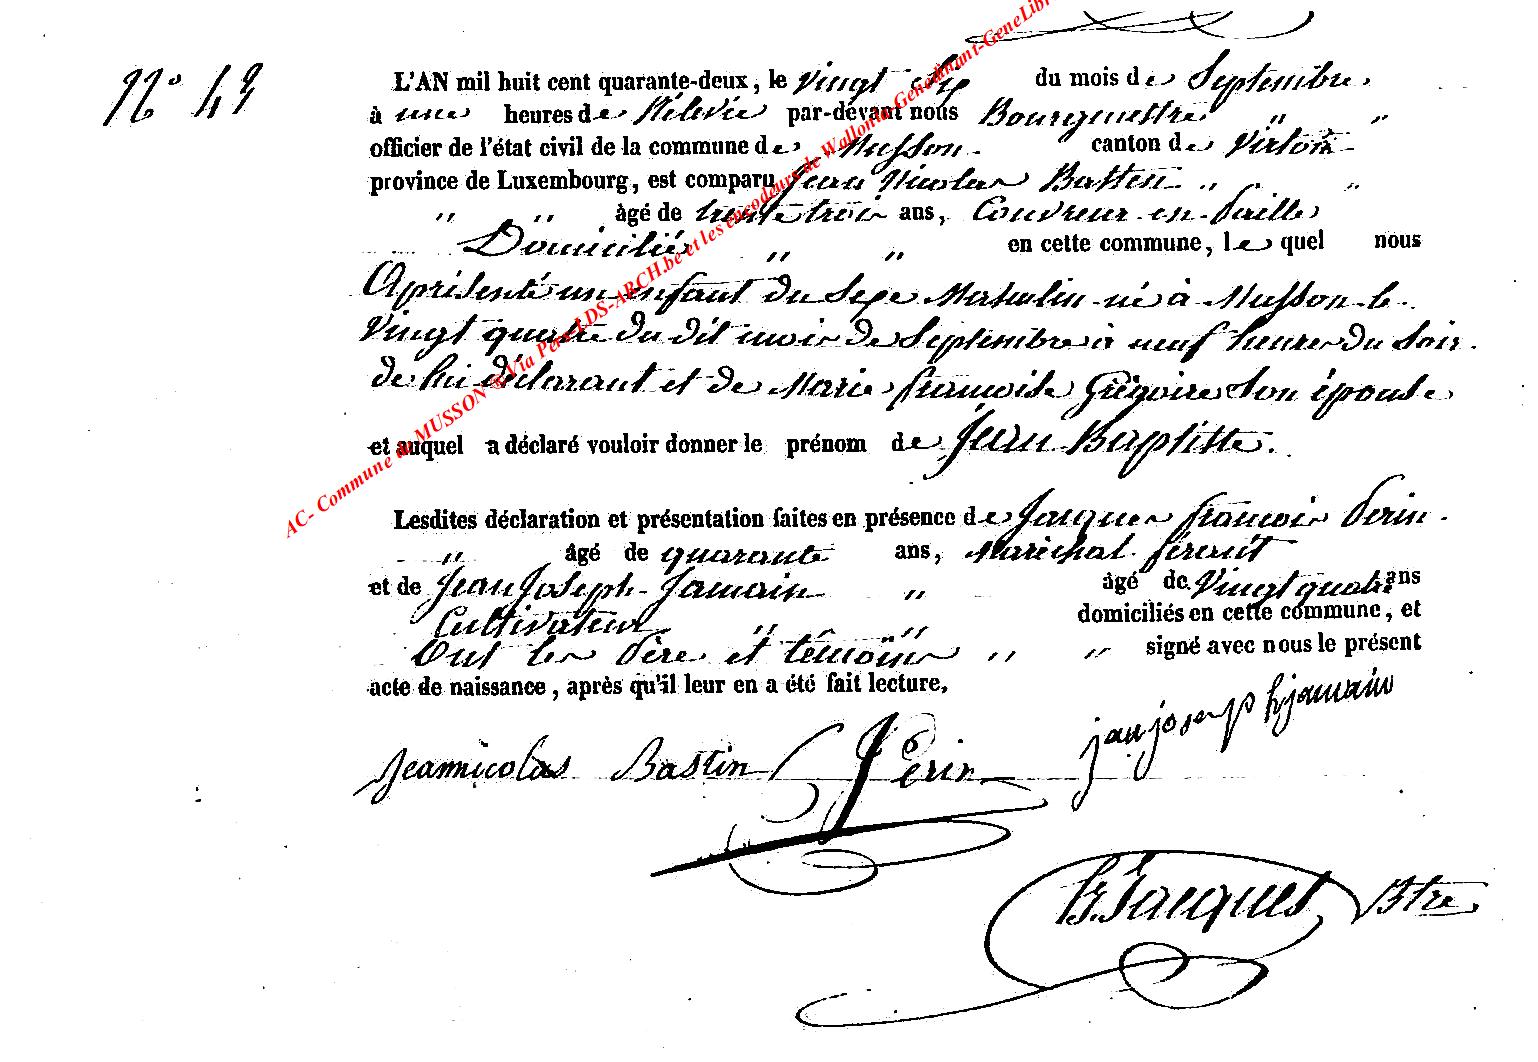 N° 43
L'AN mil huit cent quarante-deux, le vingt six du mois de Septembre
à une heures de Rélevée par-devant nous Bourgmestre " "
officier de l'état civil de la commune de Musson canton de Virton
province de Luxembourg, est comparu Jean Nicolas Basten " "
" " âgé de trente trois ans, Couvreur en paille
Domicilié " " en cette commune, le quel nous
A présenté un enfant du Sexe Masculin né à Musson le
vingt quatre du dit mois de Septembre à neuf heures du Soir
de lui déclarant et de Marie françoise Grégoire Son épouse
et auquel a déclaré vouloir donner le prénom de Jean Baptiste.
Lesdites déclaration et présentation faites en présence de Jacques françois Perin
" âgé de quarante ans, Maréchal férent
et de Jean Joseph Jamain " âgé de Vingt quatre ans
Cultivateur " " domiciliés en cette commune, et
Ont les Père et témoins " " signé avec nous le présent
acte de naissance, après qu'il leur en a été fait lecture.
Jeannicolas Bastin Perin jean joseph hjamain
Jacquet Btre
AC- Commune de MUSSON © Via Pero LDS-ARCH.be et les encodeurs de Wallonia-Genedinant-GeneLibr